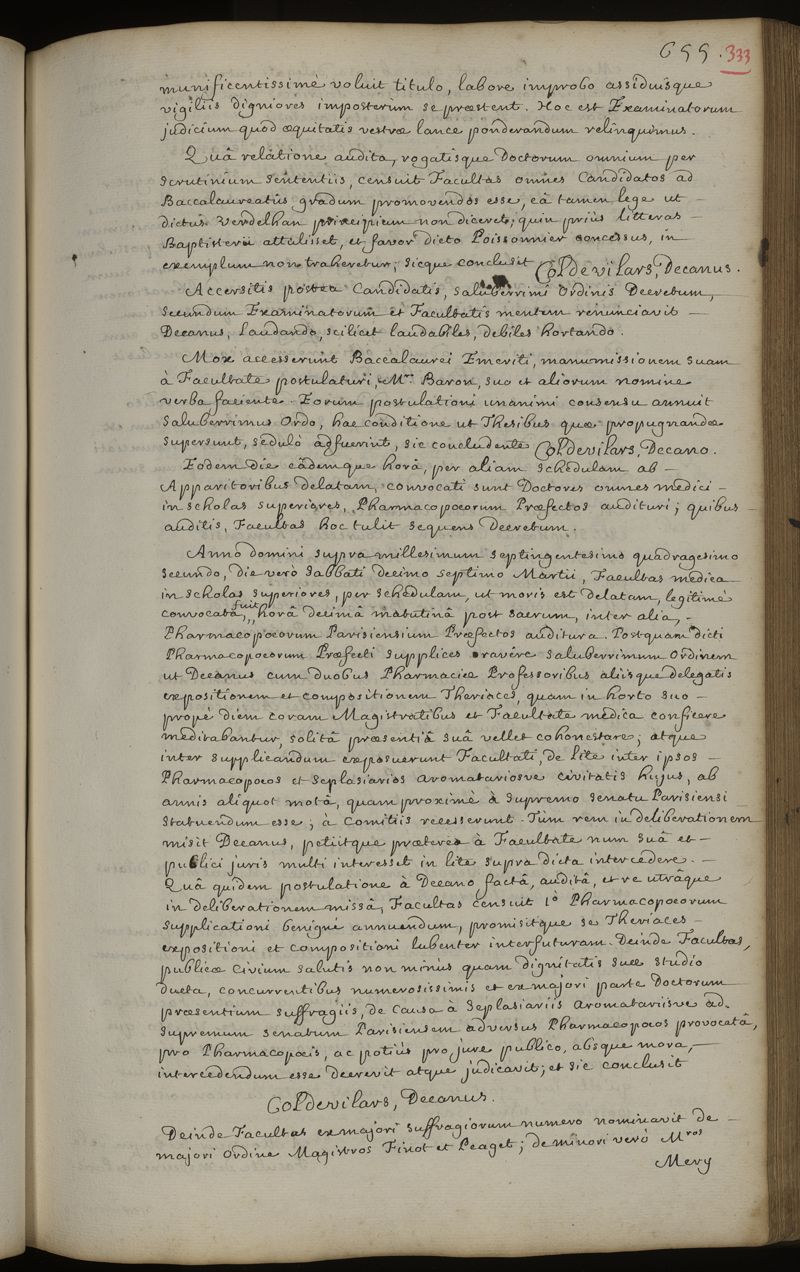 699. 333
munificentissimè voluit titulo, labore improbo assiduisque
vigiliis digniores imposterùm se præstent. Hoc est Examinatorum
judicium quod æquitatis vestræ lance ponderandum relinquimus.
Quâ relatione audita, rogatisque Doctorum omnium per
scrutinium sententiis, censuit Facultas omnes Candidatos ad
Baccalaureatûs gradum promovendos esse, eâ tamen lege ut
dictus Verdelhan principium non diceret, quin priùs litteras
Baptisterii attulisset, et favor dicto Poissonnier concessus, in
exemplum non traheretur; sicque conclusit Col de vilars, Decanus.
Accersitis postea Candidatis, saluberrimi Ordinis Decretum,
secundum Examinatorum et Facultatis mentem renunciavit
Decanus, Laudando, scilicet laudabiles, debiles hortando.
Mox accesserunt Baccalaurei Emeriti, manumissionem suam
à Facultate postulaturi, Mro Baron, suo et aliorum nomine
verba faciente. Eorum postulationi unanimi consensu annuit
Saluberrimus Ordo, hac conditione ut Thesibus quæ propugnandæ
supersunt, sedulò adfuerint, sic concludente Col de vilars, Decano.
Eodem die eâdemque horâ, per aliam schedulam ab
Apparitoribus delatam, convocati sunt Doctores omnes medici
in scholas superiores, Pharmacopoeorum Præfectos audituri; quibus
auditis, Facultas hoc tulit sequens Decretum.
Anno domini supra millesimum septingentesimo quadragesimo
secundo, die verò Sabbati decimo septimo Martii, Facultas medica
in scholas superiores, per schedulam, ut moris est delatam, legitimè
convocata fuit, horâ decimâ matutinâ post sacrum, inter alia,
Pharmacopoeorum Parisiensium Præfectos auditura. Postquam dicti
Pharmacopoeorum Præfecti supplices oravêre saluberrimum Ordinem
ut Decanus cum duobus Pharmaciæ Professoribus aliisque delegatis
expositionem et compositionem Theriaces, quam in horto suo
propè diem coram Magistratibus et Facultate medica conficere
meditabantur, solitâ præsentiâ suâ vellet cohonestare; atque
inter supplicandum exposuerunt Facultati, de lite inter ipsos
Pharmacopoeos et Seplasiarios aromatariosve civitatis hujus, ab
annis aliquot motâ, quam proximè à supremo senatu Parisiensi
statuendum esse; à Comitiis recesserunt. Tum rem in deliberationem
misit Decanus, petiitque præterea à Facultate num suâ et
publici juris multi interesset in lite supra dicta intercedere.
Quâ quidem postulatione à Decano factâ, auditâ, et re utrâque
in deliberationem missâ, Facultas censuit 1o Pharmacopoeorum
supplicationi benignè annuendum, promisitque se Theriaces
expositioni et compositioni lubenter interfuturam. Deinde Facultas,
publicæ civium salutis non minùs quam dignitatis suæ studio
ducta, concurrentibus numerosissimis et ex majori parte Doctorum
præsentium suffragiis, de causa à Seplasiariis Aromatariisve ad
supremum senatum Parisiensem adversus Pharmacopoeos provocatâ,
pro Pharmacopoeis, ac potiùs pro jure publico, absque mora,
intercedendum esse decrevit atque judicavit; et sic conclusit
Col de vilars, Decanus.
Deinde Facultas ex majori suffragiorum numero nominavit de
majori Ordine Magistros Finot et Peaget; de minori verò Mros
Mery